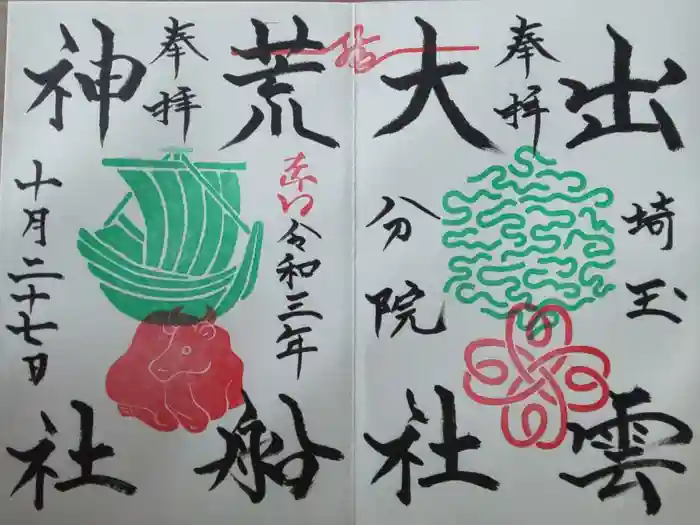 出雲
埼玉
奉拝
大社
分院
結
荒船
令和三年
奉拝
神社
十月二十七日